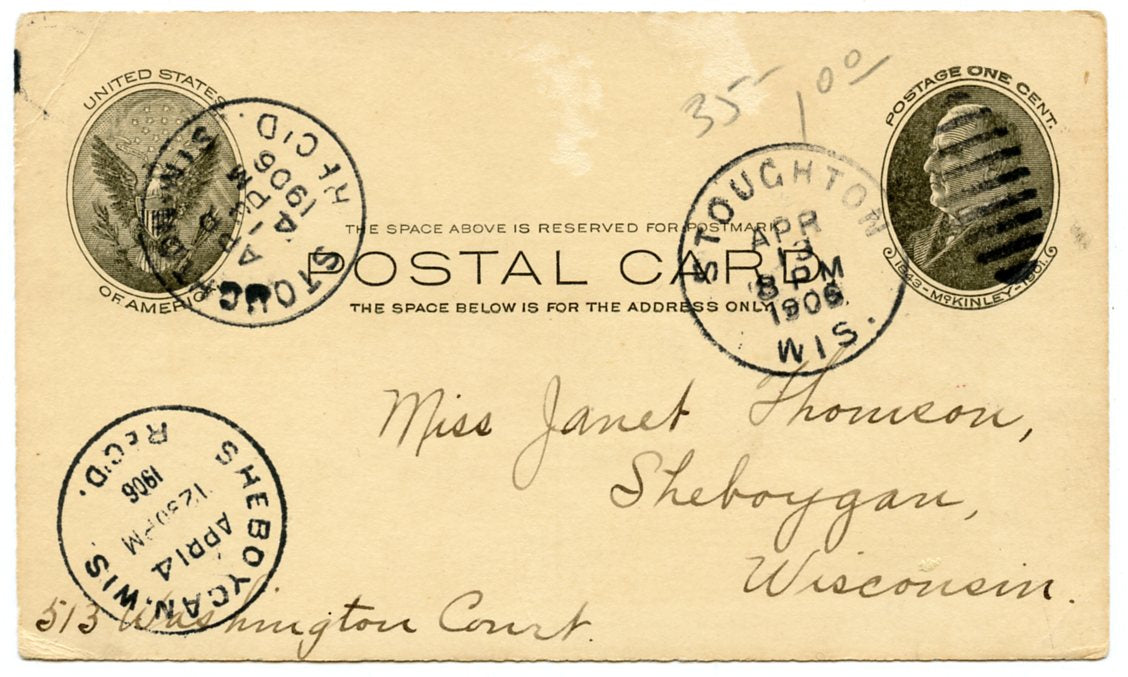 35 1 00
UNITED STATES
OF AMERICA
POSTAGE ONE CENT.
1843-McKINLEY-1901.
REC'D.
1906
STOUGHTON
APR
13
8 PM
1906
WIS.
THE SPACE ABOVE IS RESERVED FOR POSTMARK
POSTAL CARD
THE SPACE BELOW IS FOR THE ADDRESS ONLY
Miss Janet Thomson,
Sheboygan,
Wisconsin.
SHEBOYGAN, WIS.
APR 14
12 30 PM
1906
REC'D.
513 Washington Court.